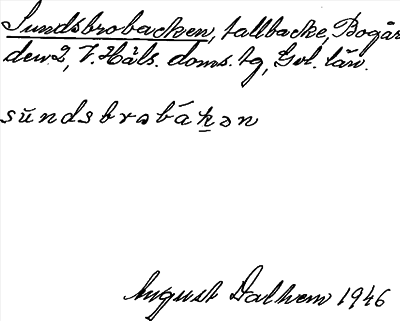 Sundsbrobacken, tallbacke, Bogår
den 2, V. Håls. doms. tg, Gvl. län.
sŭndsbrobákən
August Dalhem 1946